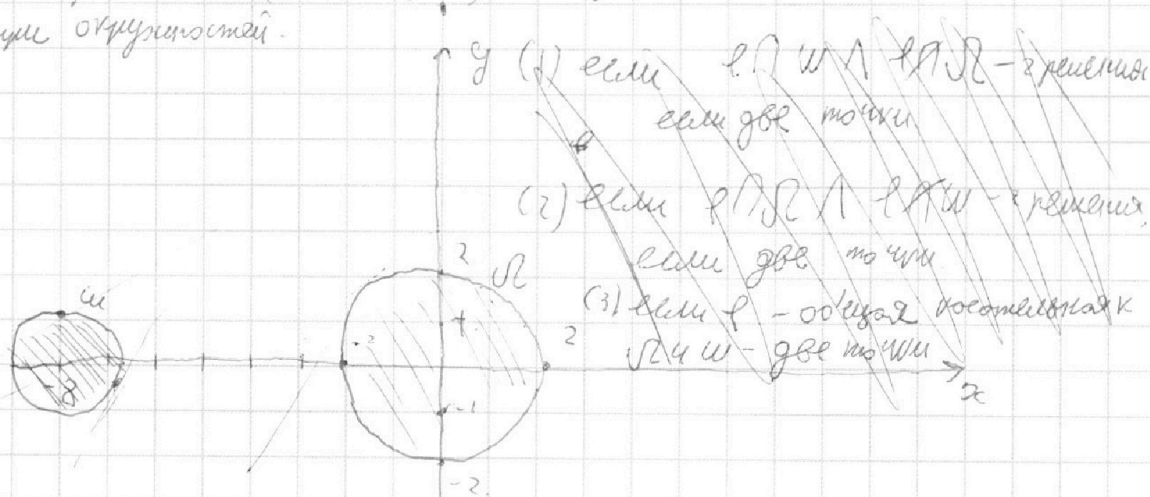 окружностей.
y (1) если l ∩ ω ∧ l ∩ Ω – 2 решения
если две точки
(2) если l ∩ Ω ∧ l ∩ ω – 2 решения,
если две точки
(3) если l – общая касательная к
Ω и ω – две точки
2
Ω
ω
-2
2
x
-1
-2